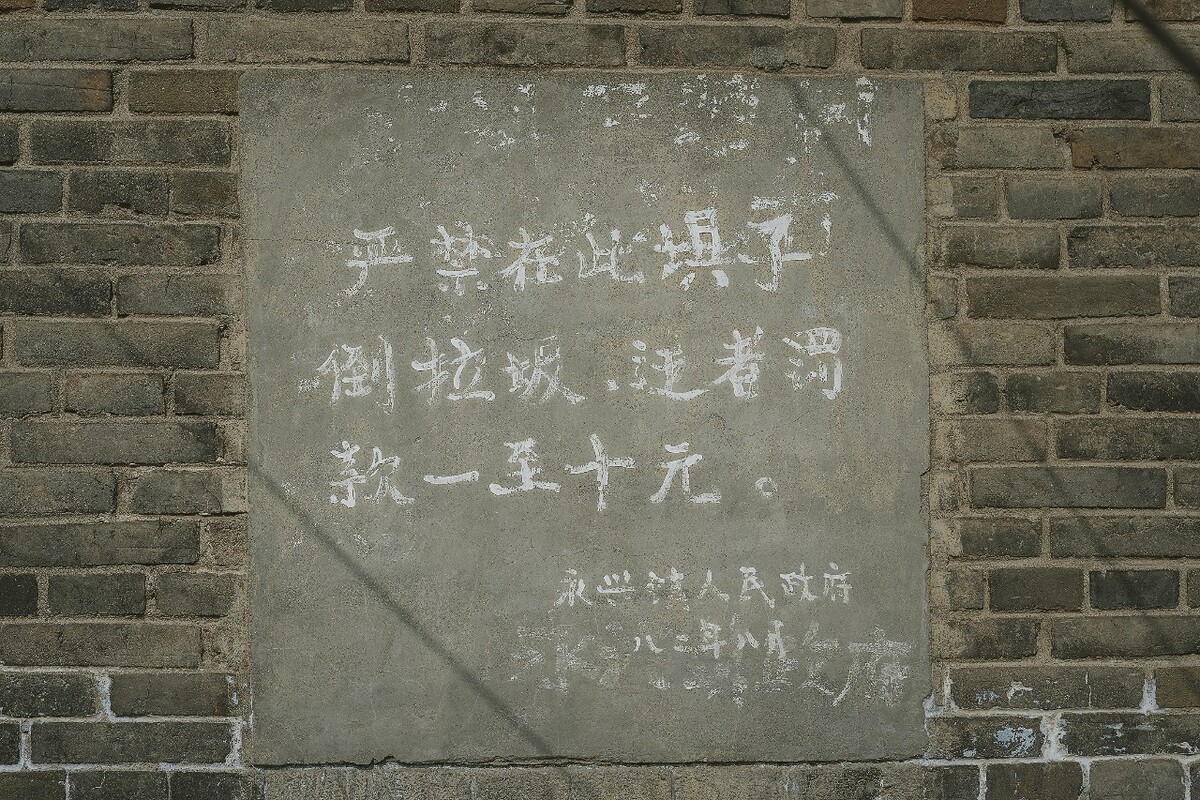 严禁在此埧子
倒拉圾.违者罚
款一至十元。
永兴镇人民政府
八二年八月